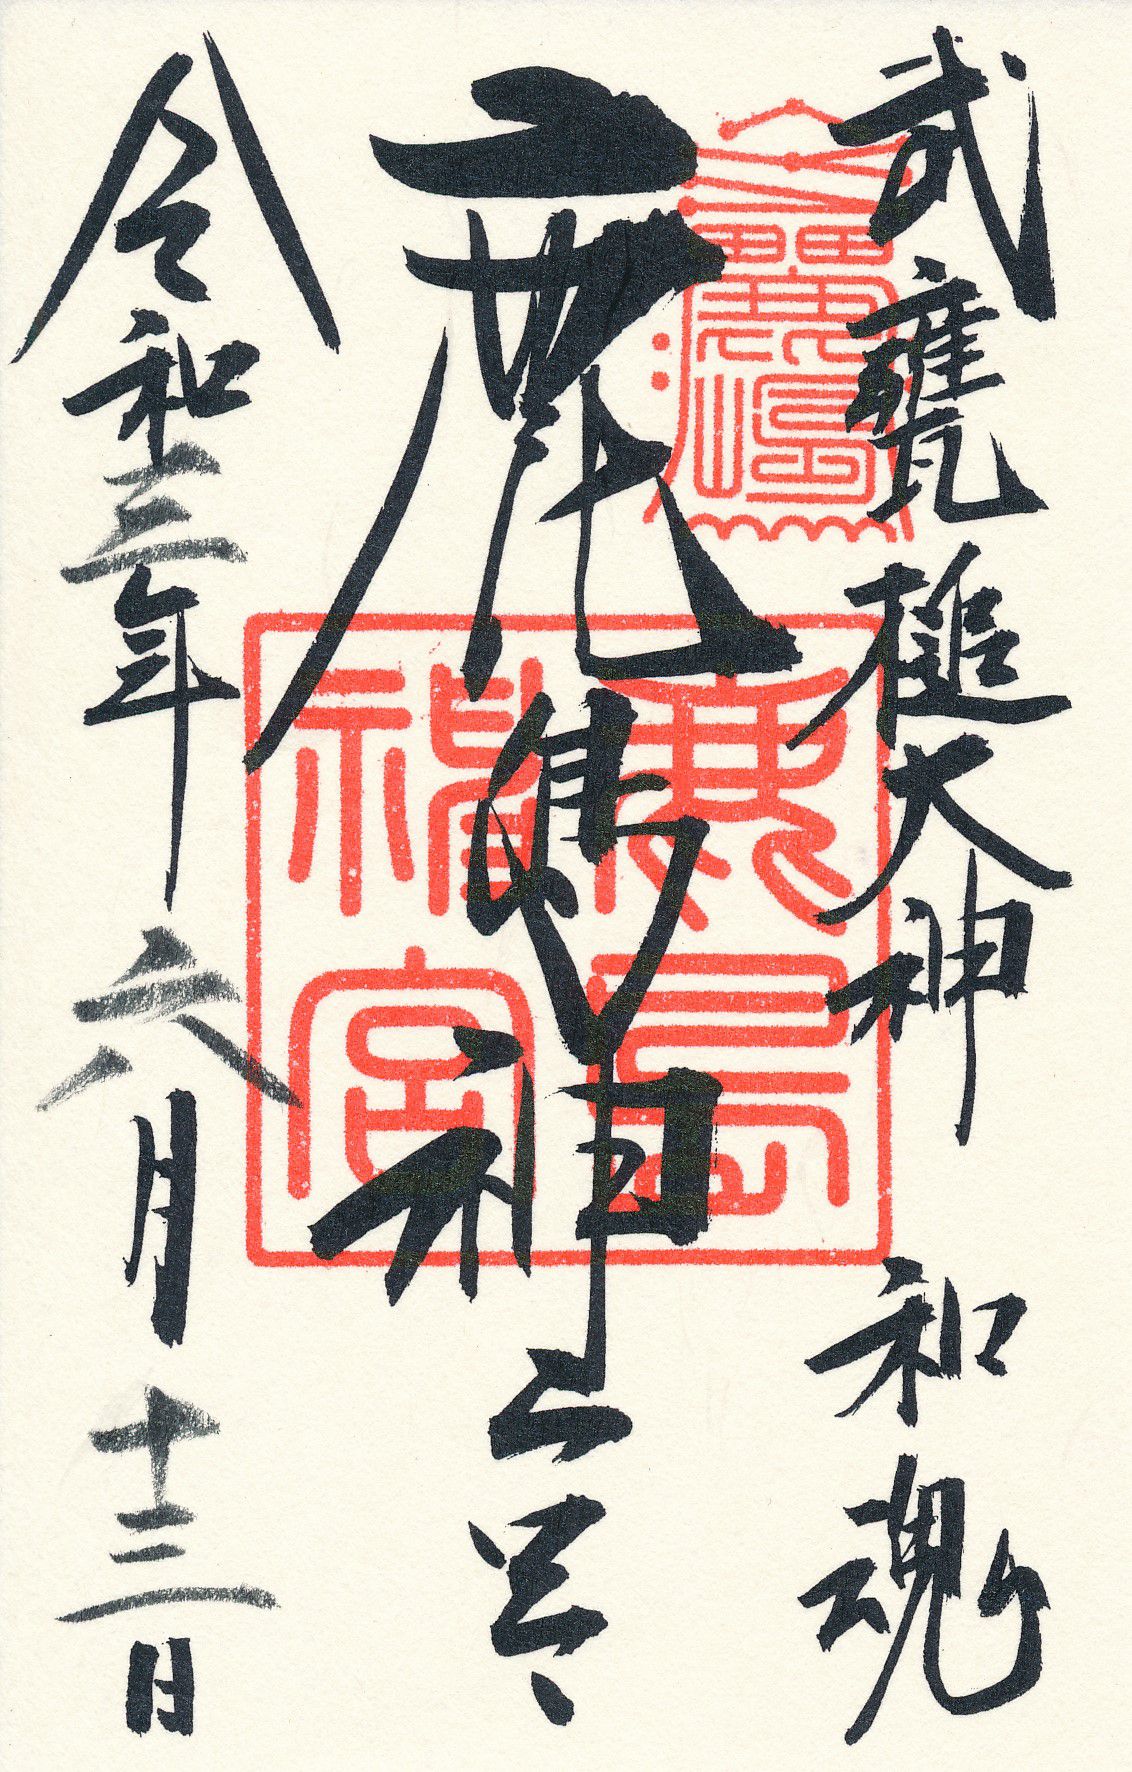 武甕槌大神 和魂
鹿島神宮
鹿島神宮
令和三年六月十三日